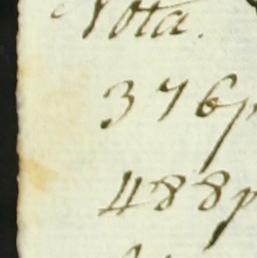 Nota.
376p
488p